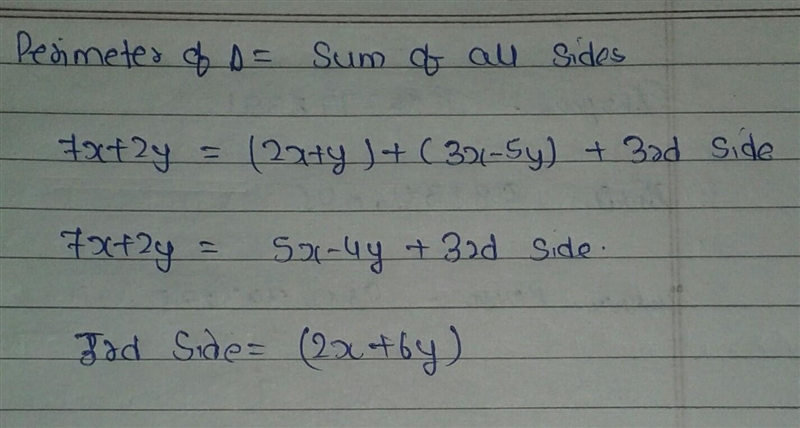 Perimeter of Δ = Sum of all Sides
7x+2y = (2x+y) + (3x-5y) + 3rd Side
7x+2y = 5x-4y + 3rd Side.
3rd Side = (2x+6y)